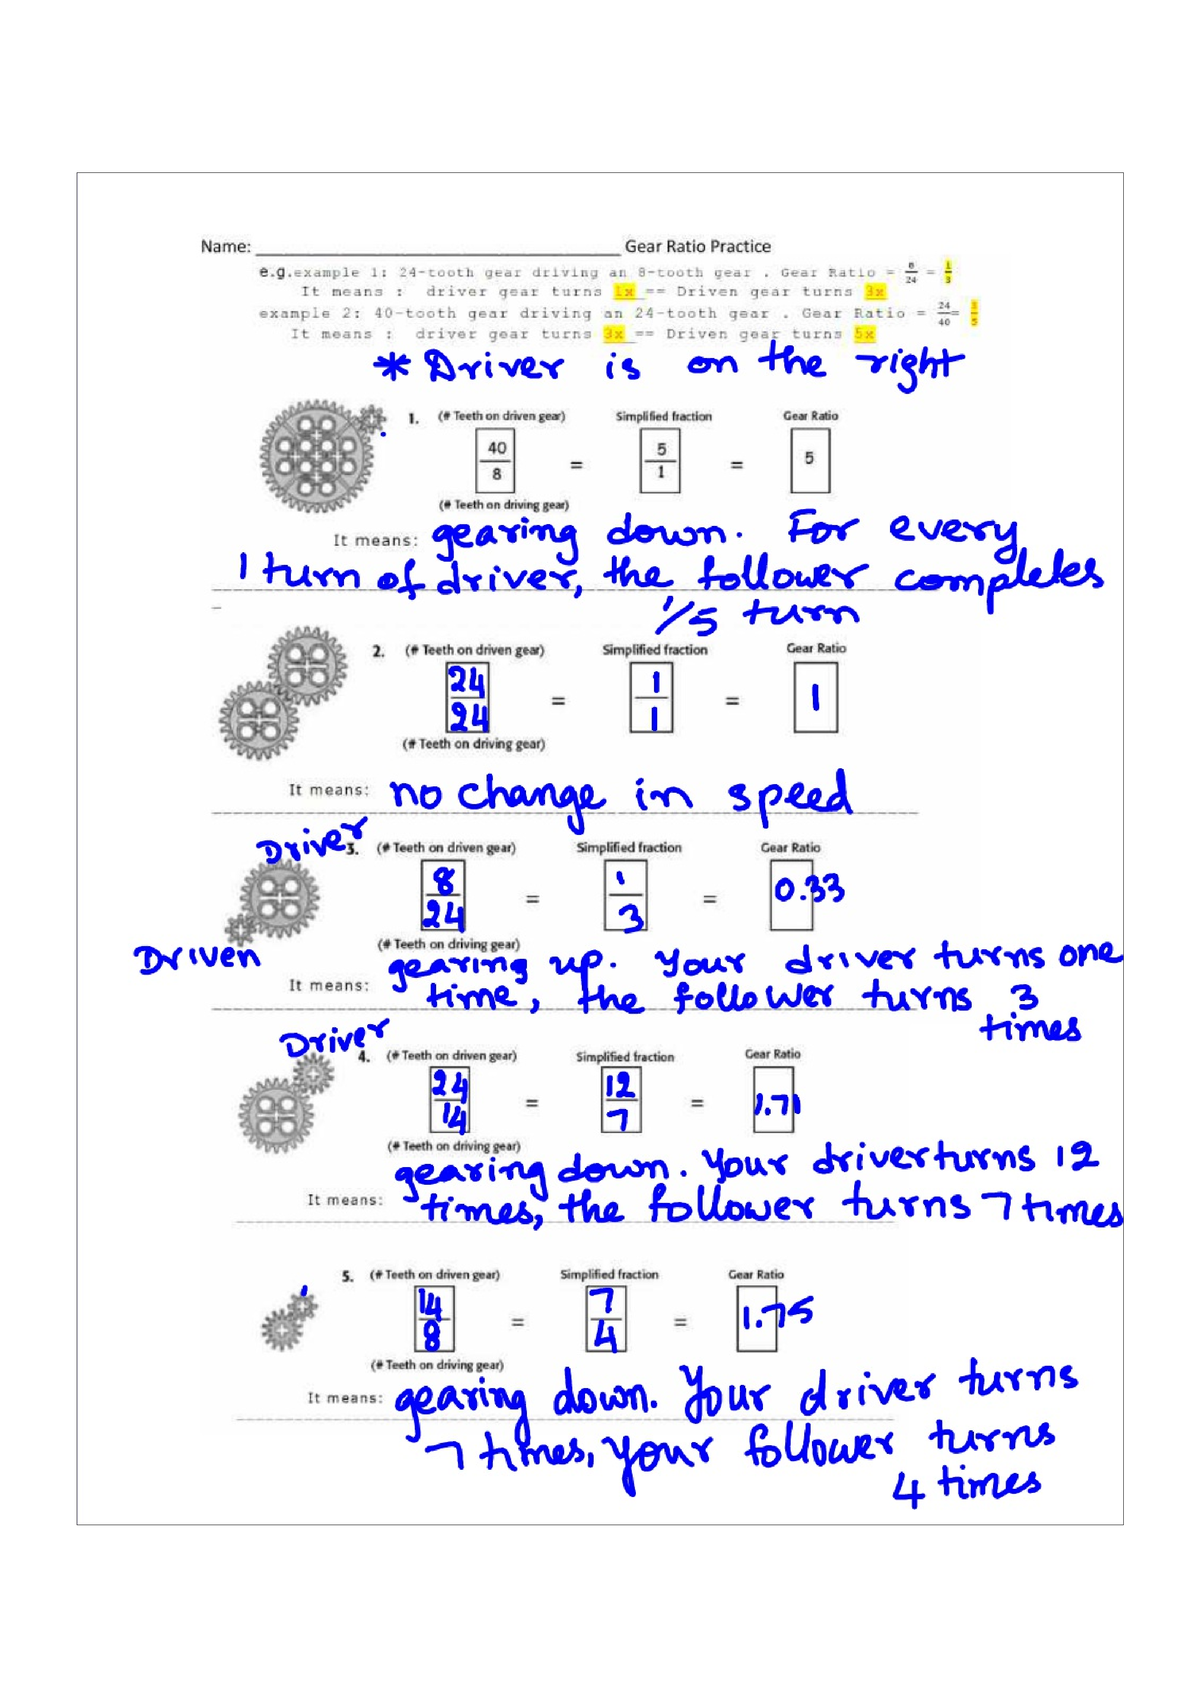 Name: ____________________ Gear Ratio Practice
e.g.example 1: 24-tooth gear driving an 8-tooth gear . Gear Ratio = 8/24 = 1/3
It means : driver gear turns 1x == Driven gear turns 3x
example 2: 40-tooth gear driving an 24-tooth gear . Gear Ratio = 24/40 = 3/5
It means : driver gear turns 3x == Driven gear turns 5x
* Driver is on the right
1. (# Teeth on driven gear) Simplified fraction Gear Ratio
40/8 = 5/1 = 5
(# Teeth on driving gear)
It means: gearing down. For every
1 turn of driver, the follower completes
1/5 turn
2. (# Teeth on driven gear) Simplified fraction Gear Ratio
24/24 = 1/1 = 1
(# Teeth on driving gear)
It means: no change in speed
Driver
3. (# Teeth on driven gear) Simplified fraction Gear Ratio
8/24 = 1/3 = 0.33
(# Teeth on driving gear)
Driven
It means: gearing up. Your driver turns one
time, the follower turns 3
times
Driver
4. (# Teeth on driven gear) Simplified fraction Gear Ratio
24/14 = 12/7 = 1.71
(# Teeth on driving gear)
It means: gearing down. Your driver turns 12
times, the follower turns 7 times
5. (# Teeth on driven gear) Simplified fraction Gear Ratio
14/8 = 7/4 = 1.75
(# Teeth on driving gear)
It means: gearing down. Your driver turns
7 times, your follower turns
4 times